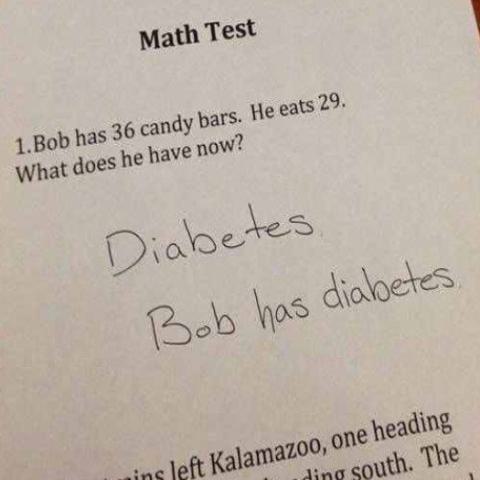 Math Test
1.Bob has 36 candy bars. He eats 29.
What does he have now?
Diabetes.
Bob has diabetes.
left Kalamazoo, one heading
south. The